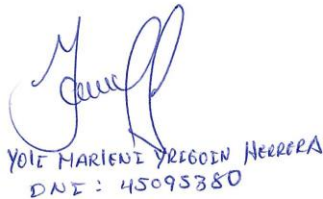 YOLI MARLENI YRIGOIN HERRERA
DNI: 45095380